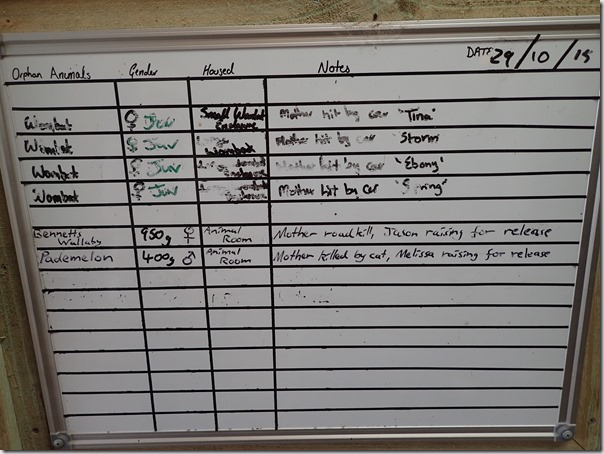 DATE 29/10/15
Orphan Animals Gender Housed Notes
Wombat ♀ Juv Small Wombat Enclosure Mother hit by car 'Tina'
Wombat ♀ Juv Wombat Mother hit by car 'Storm'
Wombat ♀ Juv Mother hit by car 'Ebony'
Wombat ♀ Juv Mother hit by car 'Spring'
Bennetts Wallaby 950g ♀ Animal Room Mother roadkill, raising for release
Pademelon 400g ♂ Animal Room Mother killed by cat, Melissa raising for release